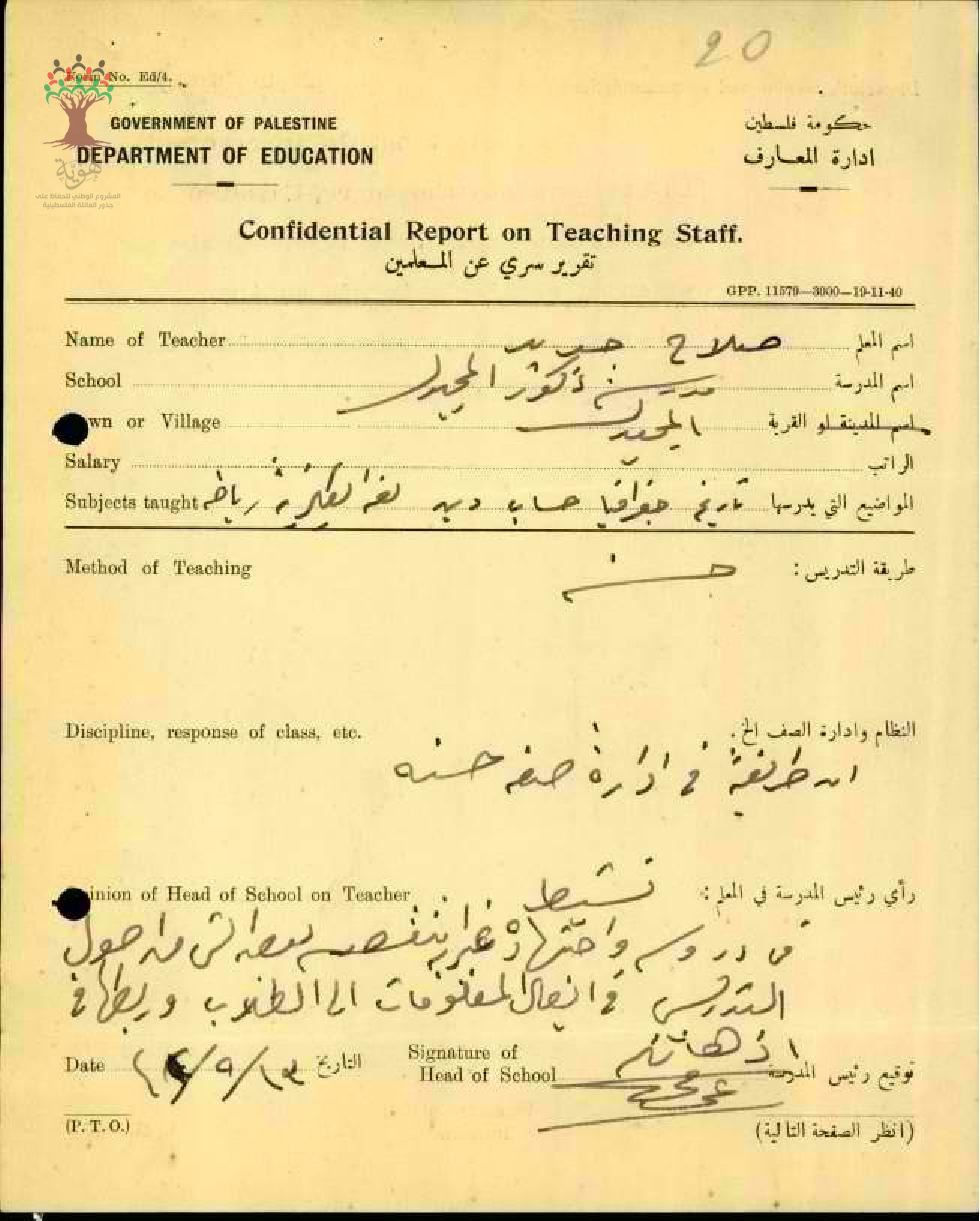 20
Form No. Ed/4.
GOVERNMENT OF PALESTINE
حكومة فلسطين
DEPARTMENT OF EDUCATION
ادارة المعارف
هوية
المشروع الوطني للحفاظ على
جذور العائلة الفلسطينية
Confidential Report on Teaching Staff.
تقرير سري عن المعلمين
GPP. 11579—3000—19-11-40
Name of Teacher صلاح اسم المعلم
School مدرسة ذكور المجيدل اسم المدرسة
wn or Village المجيدل اسم المدينة او القرية
Salary الراتب
Subjects taught تاريخ جغرافيا حساب دين لغة انكليزية رياضة المواضيع التي يدرسها
Method of Teaching طريقة التدريس :
حسنة
Discipline, response of class, etc. النظام وادارة الصف الخ.
ان طريقة في ادارة صفه حسنه
inion of Head of School on Teacher نشيط رأي رئيس المدرسة في المعلم :
في دروسه واجتهاد غير انه ينقصه بعض الشي من اصول
التدريس في ايصال المعلومات الى الطلاب وربطها في
اذهانهم
Date التاريخ
Signature of
Head of School توقيع رئيس المدرسة
(P. T. O.) (انظر الصفحة التالية)